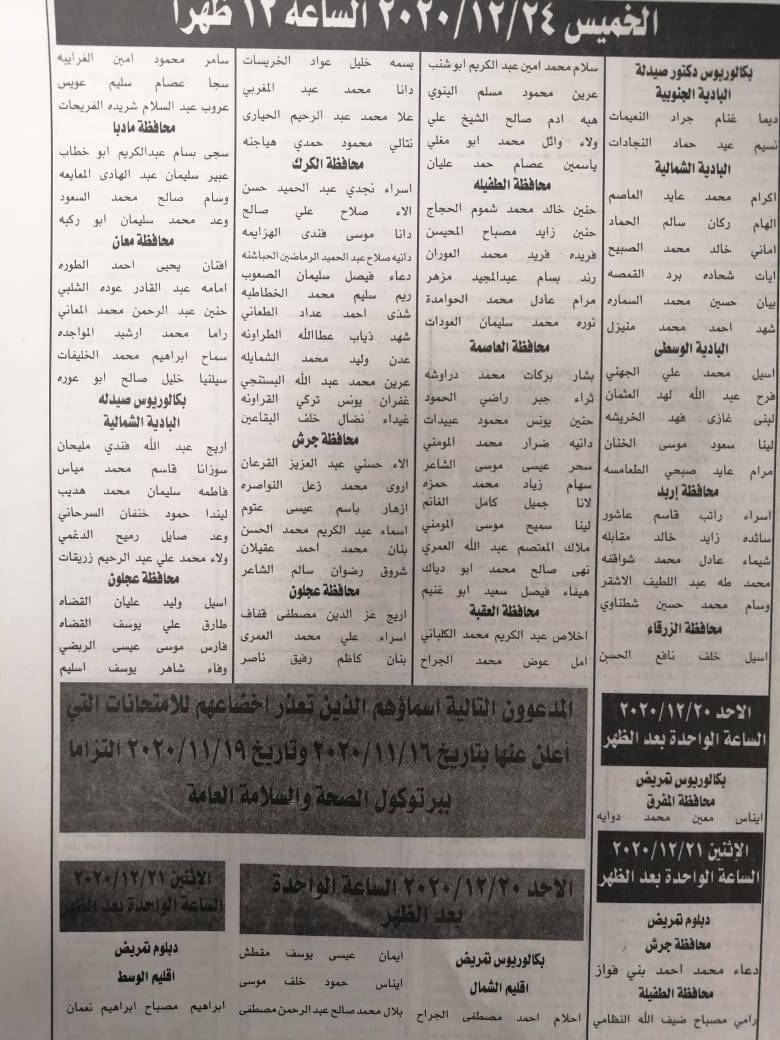 الخميس ٢٠٢٠/١٢/٢٤ الساعة ١٢ ظهرا
بكالوريوس دكتور صيدلة
البادية الجنوبية
ديما غنام جراد النعيمات
نسيم عيد حماد النجادات
البادية الشمالية
اكرام محمد عايد العاصم
الهام ركان سالم الحماد
اماني خالد محمد الصبيح
ايات شحاده برد القمصه
بيان حسين محمد السماره
شهد احمد محمد منيزل
البادية الوسطى
اسيل محمد علي الجهني
فرح عبد الله لهد العثمان
لبنى غازي فهد الخريشه
لينا سعود موسى الخنان
مرام عايد صبحي الطعامسه
محافظة إربد
اسراء راتب قاسم عاشور
سائده زايد خالد مقابله
شيماء عادل محمد شواقفه
محمد طه عبد اللطيف الاشقر
وسام محمد حسين شطناوي
محافظة الزرقاء
اسيل خلف نافع الحسن
سلام محمد امين عبد الكريم ابو شنب
عرين محمود مسلم البنوي
هبه ادم صالح الشيخ علي
ولاء وائل محمد ابو مغلي
ياسمين عصام حمد عليان
محافظة الطفيله
حنين خالد محمد شموم الحجاج
حنين زايد مصباح المحيسن
فريده فريد محمد العوران
رند بسام عبدالمجيد مزهر
مرام عادل محمد الحوامدة
نوره محمد سليمان العودات
محافظة العاصمة
بشار بركات محمد دراوشه
ثراء جبر راضي الحمود
حنين يونس محمود عبيدات
دانيه ضرار محمد المومني
سحر عيسى موسى الشاعر
سهام زياد محمد حمزه
لانا جميل كامل الغانم
لينا سميح موسى المومني
ملاك المعتصم عبد الله العمري
نهى صالح محمد ابو دياك
هيفاء فيصل سعيد ابو غنيم
محافظة العقبة
اخلاص عبد الكريم محمد الكلباني
امل عوض محمد الجراح
بسمه خليل عواد الخريسات
دانا محمد عبد المغربي
علا محمد عبد الرحيم الحياري
نتالي محمود حمدي هياجنه
محافظة الكرك
اسراء نجدي عبد الحميد حسن
الاء صلاح علي صالح
دانا موسى فندى الهزايمه
دانيه صلاح عبد الحميد الرماضين الحباشنه
دعاء فيصل سليمان الصعوب
ريم سليم محمد الخطاطبه
شذى احمد عداد الطعاني
شهد ذياب عطاالله الطراونه
عدن وليد محمد الشمايله
عرين محمد عبد الله البستنجي
غفران يونس تركي القراونه
غيداء نضال خلف البقاعين
محافظة جرش
الاء حسني عبد العزيز القرعان
اروى محمد زعل النواصره
ازهار باسم عيسى عتوم
اسماء عبد الكريم محمد الحسن
بنان محمد احمد عقيلان
شروق رضوان سالم الشاعر
محافظة عجلون
اريج عز الدين مصطفى قفاف
اسراء علي محمد العمرى
بنان كاظم رفيق ناصر
سامر محمود امين الغرايبه
سجا عصام سليم عويس
عروب عبد السلام شريده الفريحات
محافظة مادبا
سجى بسام عبدالكريم ابو خطاب
عبير سليمان عبد الهادى المعايعه
وسام صالح محمد السعود
وعد محمد سليمان ابو ركبه
محافظة معان
افنان يحيى احمد الطوره
امامه عبد القادر عوده الشلبي
حنين عبد الرحمن محمد المعاني
راما محمد ارشيد المواجده
سماح ابراهيم محمد الخليفات
سيلنيا خليل صالح ابو عوره
بكالوريوس صيدله
البادية الشمالية
اريج عبد الله فندي مليحان
سوزانا قاسم محمد مياس
فاطمه سليمان محمد هديب
ليندا حمود خنفان السرحاني
وعد صايل رميح الدغمي
ولاء محمد علي عبد الرحيم زريقات
محافظة عجلون
اسيل وليد عليان القضاه
طارق علي يوسف القضاه
فارس موسى عيسى الربضي
وفاء شاهر يوسف اسليم
الاحد ٢٠٢٠/١٢/٢٠
الساعة الواحدة بعد الظهر
بكالوريوس تمريض
محافظة المفرق
ايناس معين محمد دوايه
الإثنين ٢٠٢٠/١٢/٢١
الساعة الواحدة بعد الظهر
دبلوم تمريض
محافظة جرش
دعاء محمد احمد بني فواز
محافظة الطفيلة
رامي مصباح ضيف الله النظامي
المدعوون التالية اسماؤهم الذين تعذر اخضاعهم للامتحانات التي
أعلن عنها بتاريخ ٢٠٢٠/١١/١٦ وتاريخ ٢٠٢٠/١١/١٩ التزاما
ببرتوكول الصحة والسلامة العامة
الاحد ٢٠٢٠/١٢/٢٠ الساعة الواحدة
بعد الظهر
بكالوريوس تمريض
اقليم الشمال
احلام احمد مصطفى الجراح
ايمان عيسى يوسف مقطش
ايناس حمود خلف موسى
بلال محمد صالح عبد الرحمن مصطفى
الإثنين ٢٠٢٠/١٢/٢١
الساعة الواحدة بعد الظهر
دبلوم تمريض
اقليم الوسط
ابراهيم مصباح ابراهيم نعمان